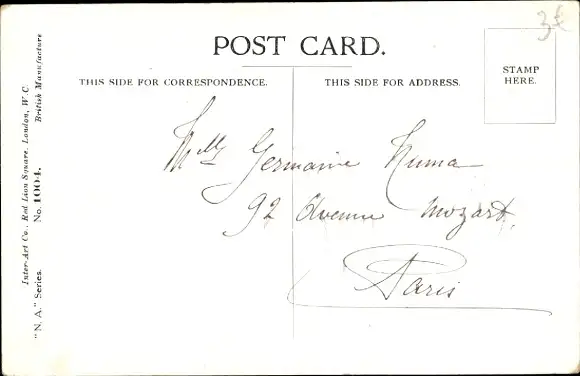 3€
POST CARD.
THIS SIDE FOR CORRESPONDENCE.
THIS SIDE FOR ADDRESS.
STAMP
HERE.
Mlle Germaine Numa
92 Avenue Mozart.
Paris
"N. A." Series.
Inter-Art Co., Red Lion Square, London, W.C.
No. 1004.
British Manufacture